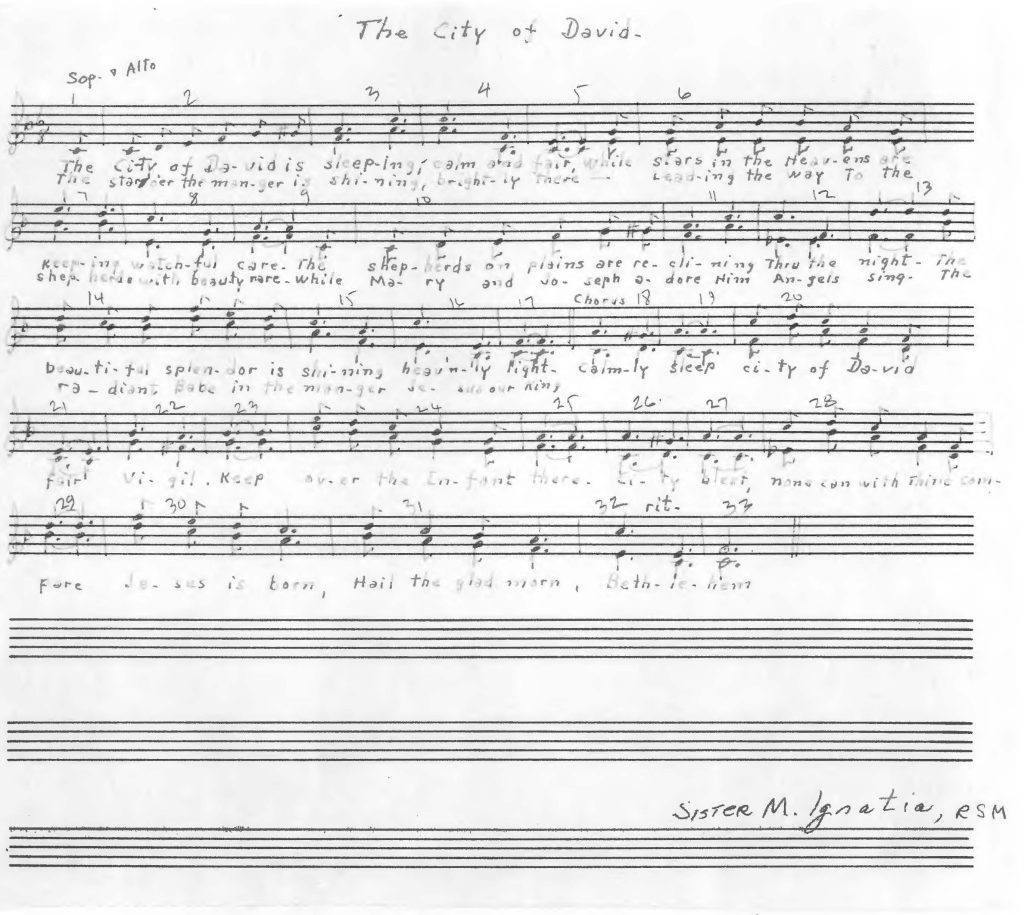 The City of David-
Sop. & Alto
1 2 3 4 5 6
The City of Da-vid is sleep-ing, calm and fair, while stars in the Heav-ens are
The star o'er the man-ger is shi-ning, bright-ly there — Lead-ing the way To the
7 8 9 10 11 12 13
Keep-ing watch-ful care. The shep-herds on plains are re-cli-ning Thru the night- The
shep-herds with beauty rare- while Ma-ry and Jo-seph a-dore Him An-gels sing- The
14 15 16 17 Chorus 18 19 20
beau-ti-ful splen-dor is shi-ning heav'n-lly light- calm-ly sleep ci-ty of Da-vid
ra-diant Babe in the man-ger Je-sus our King
21 22 23 24 25 26 27 28
fair Vi-gil. Keep ov-er the In-fant there. Ci-ty blest, none can with Thine com-
29 30 31 32 rit- 33
pare Je-sus is born, Hail the glad morn, Beth-le-hem
SISTER M. Ignatia, RSM